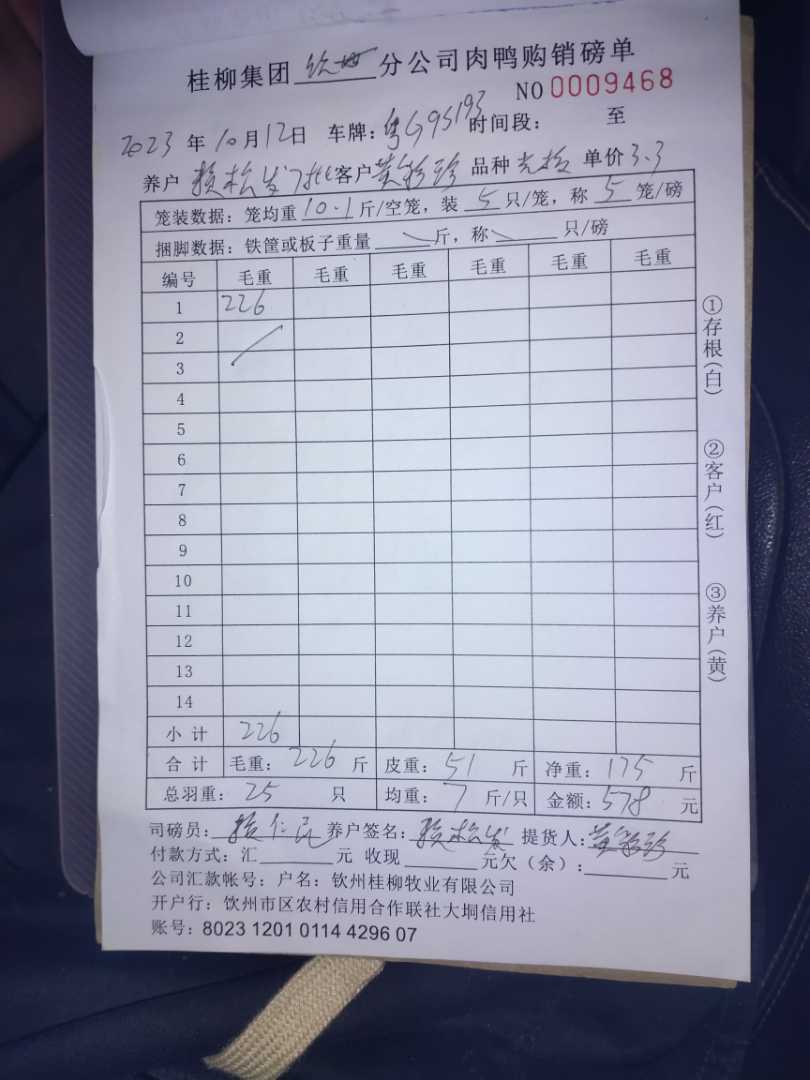 桂柳集团 钦州 分公司肉鸭购销磅单
NO 0009468
2023 年 10 月 12 日 车牌: 时间段: 至
养户 赖松发 客户 黄彩珍 品种 单价 3.3
笼装数据: 笼均重 10.1 斤/空笼, 装 5 只/笼, 称 5 笼/磅
捆脚数据: 铁筐或板子重量 斤, 称 只/磅
编号 毛重 毛重 毛重 毛重 毛重 毛重
1 226
2
3
4
5
6
7
8
9
10
11
12
13
14
小计 226
合计 毛重: 226 斤 皮重: 51 斤 净重: 175 斤
总羽重: 25 只 均重: 7 斤/只 金额: 578 元
司磅员: 养户签名: 赖松发 提货人: 黄彩珍
付款方式: 汇 元 收现 元欠(余): 元
公司汇款帐号: 户名: 钦州桂柳牧业有限公司
开户行: 钦州市区农村信用合作联社大垌信用社
账号: 8023 1201 0114 4296 07
①存根(白)
②客户(红)
③养户(黄)